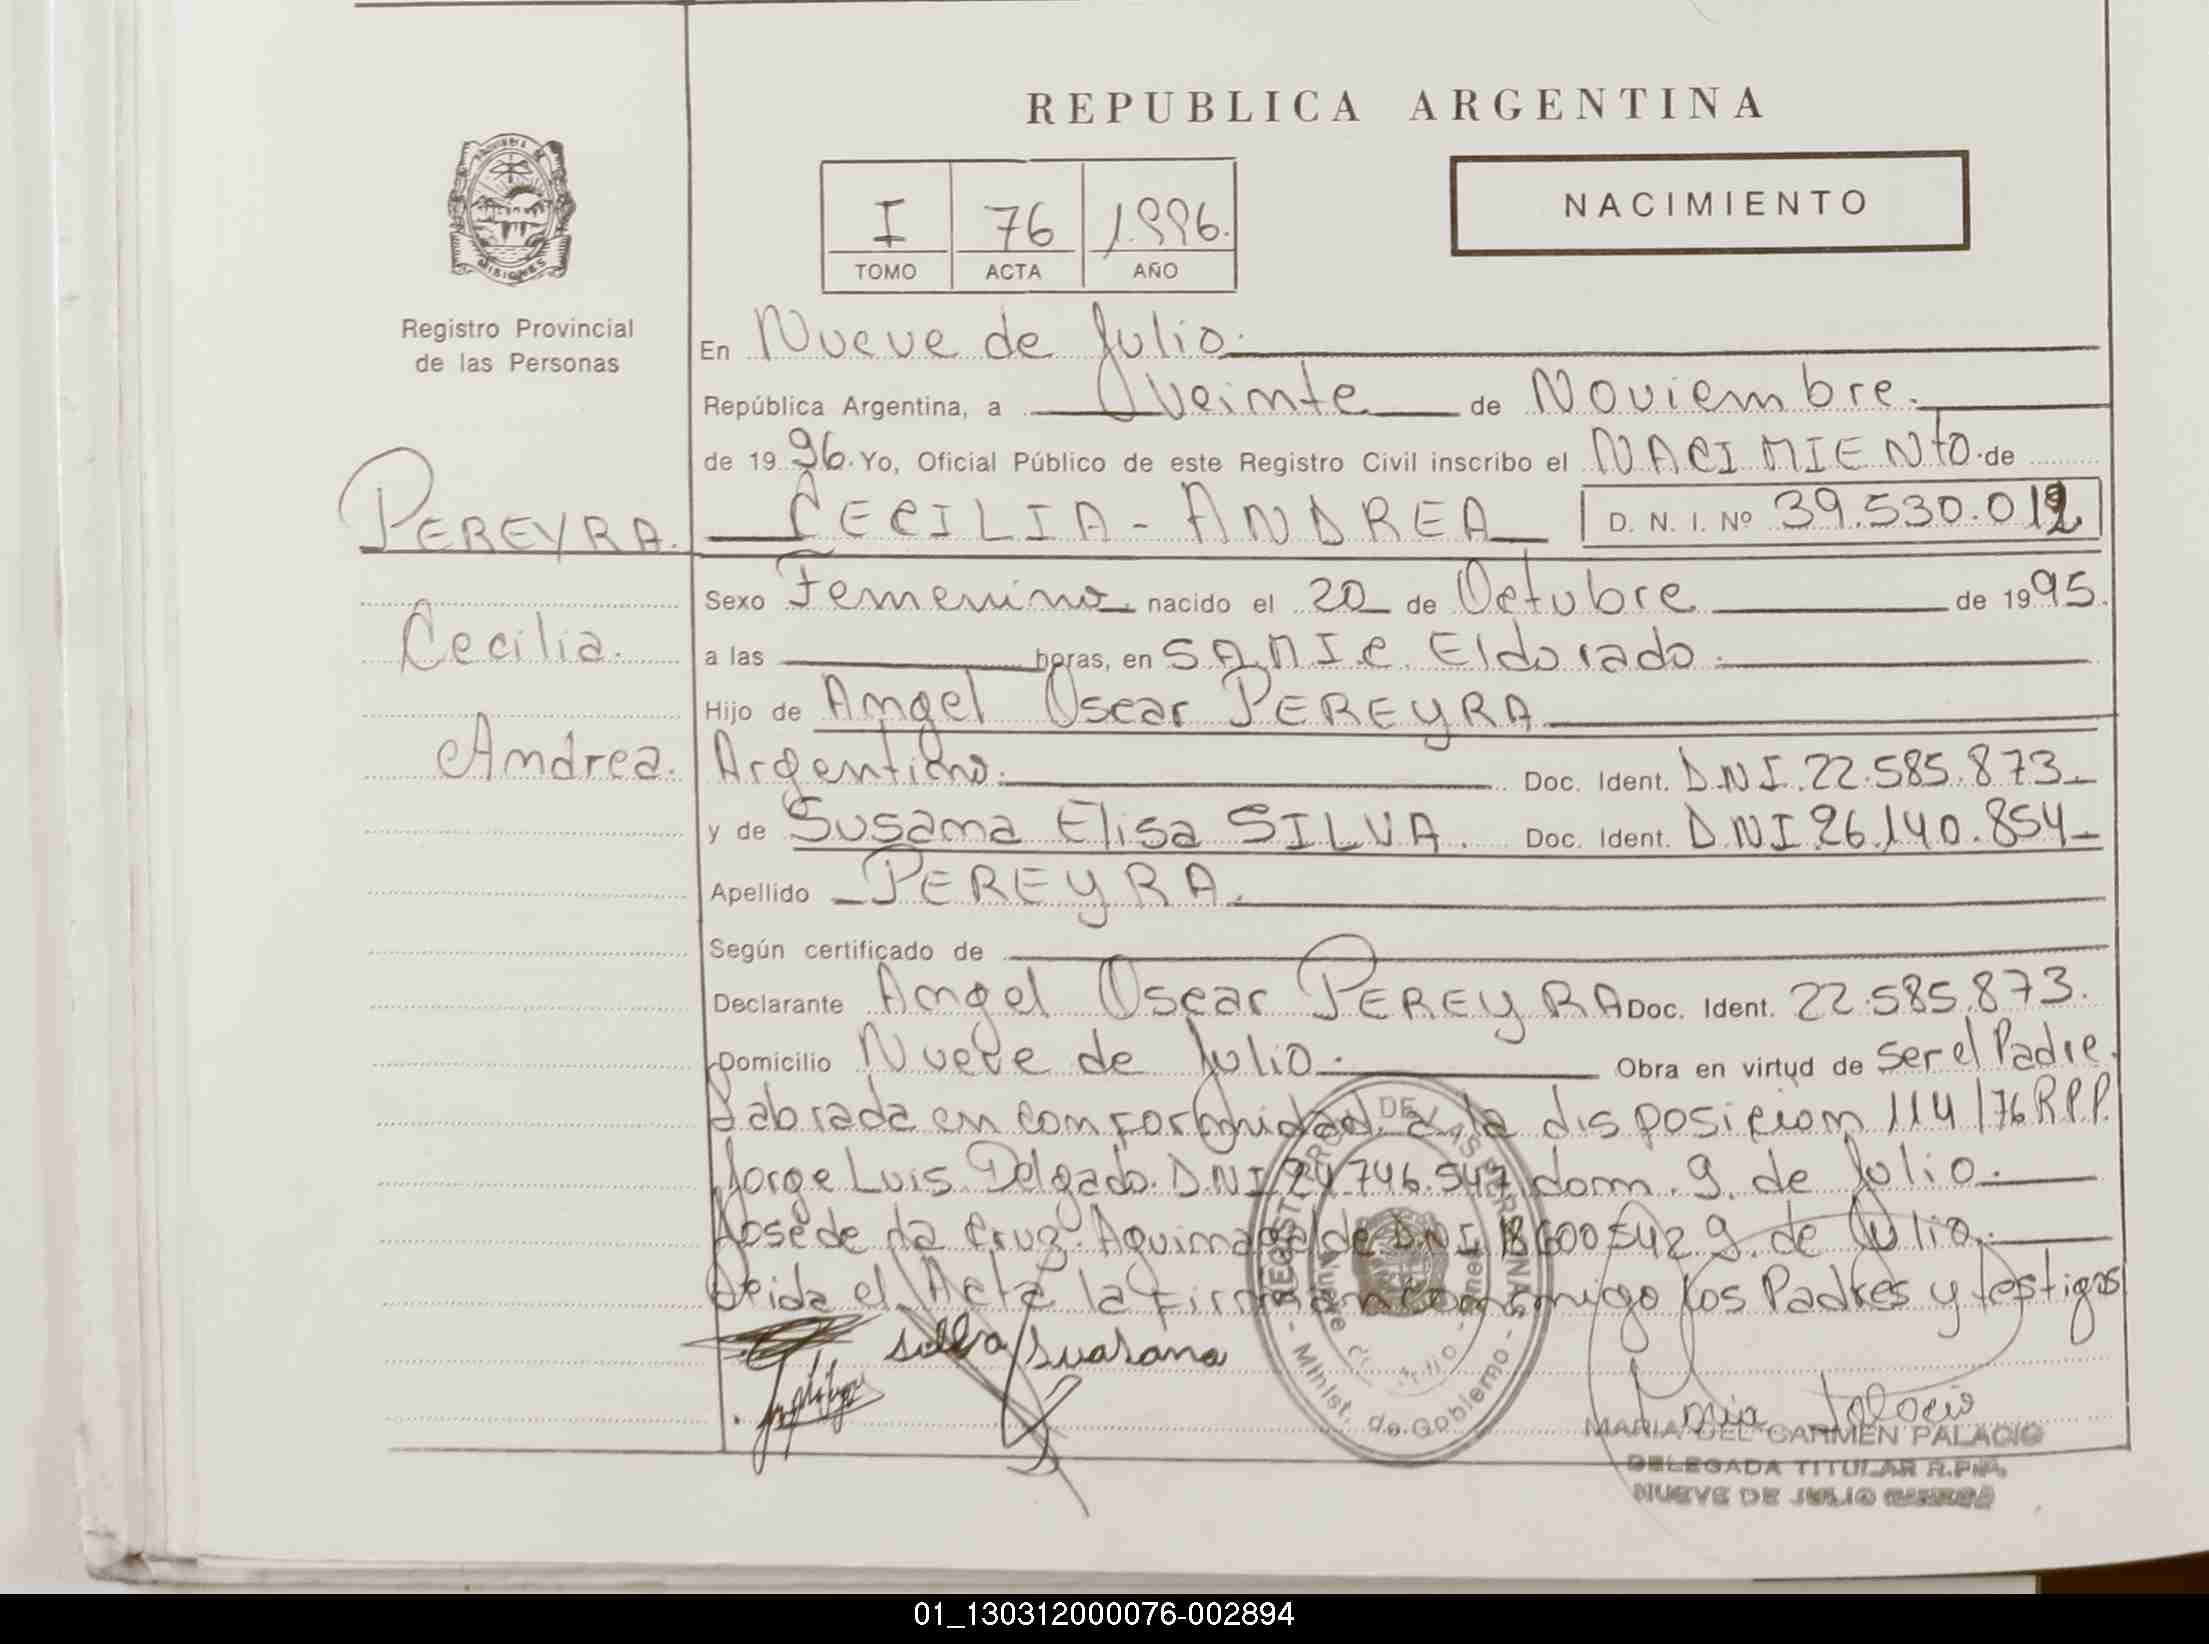 REPUBLICA ARGENTINA
I 76 1.996.
TOMO ACTA AÑO
NACIMIENTO
MISIONES
Registro Provincial
de las Personas
En Nueve de Julio.
República Argentina, a Veinte de Noviembre.
de 1996. Yo, Oficial Público de este Registro Civil inscribo el NACIMIENTO de
PEREYRA. CECILIA - ANDREA D. N. I. Nº 39.530.012
Sexo Femenino nacido el 20 de Octubre de 1995.
Cecilia. a las horas, en S.A.M.I.C. Eldorado.
Hijo de Angel Oscar PEREYRA
Andrea. Argentino. Doc. Ident. D.N.I. 22.585.873
y de Susana Elisa SILVA. Doc. Ident. DNI 26.140.854
Apellido PEREYRA.
Según certificado de
Declarante Angel Oscar PEREYRA Doc. Ident. 22.585.873.
Domicilio Nueve de Julio. Obra en virtud de ser el Padre.
Labrada en conformidad a la disposicion 114/76 R.P.P.
Jorge Luis Delgado. D.N.I 24.746.547 dom. 9. de Julio.
José de la Cruz DNI 18600542 9. de Julio.
Leida el Acta la firman conmigo los Padres y testigos
Silva Susana
REGISTRO DE LAS PERSONAS
- Minist. de Gobierno -
Maria Palacio
MARIA DEL CARMEN PALACIO
DELEGADA TITULAR R.P.P.
NUEVE DE JULIO
01_130312000076-002894